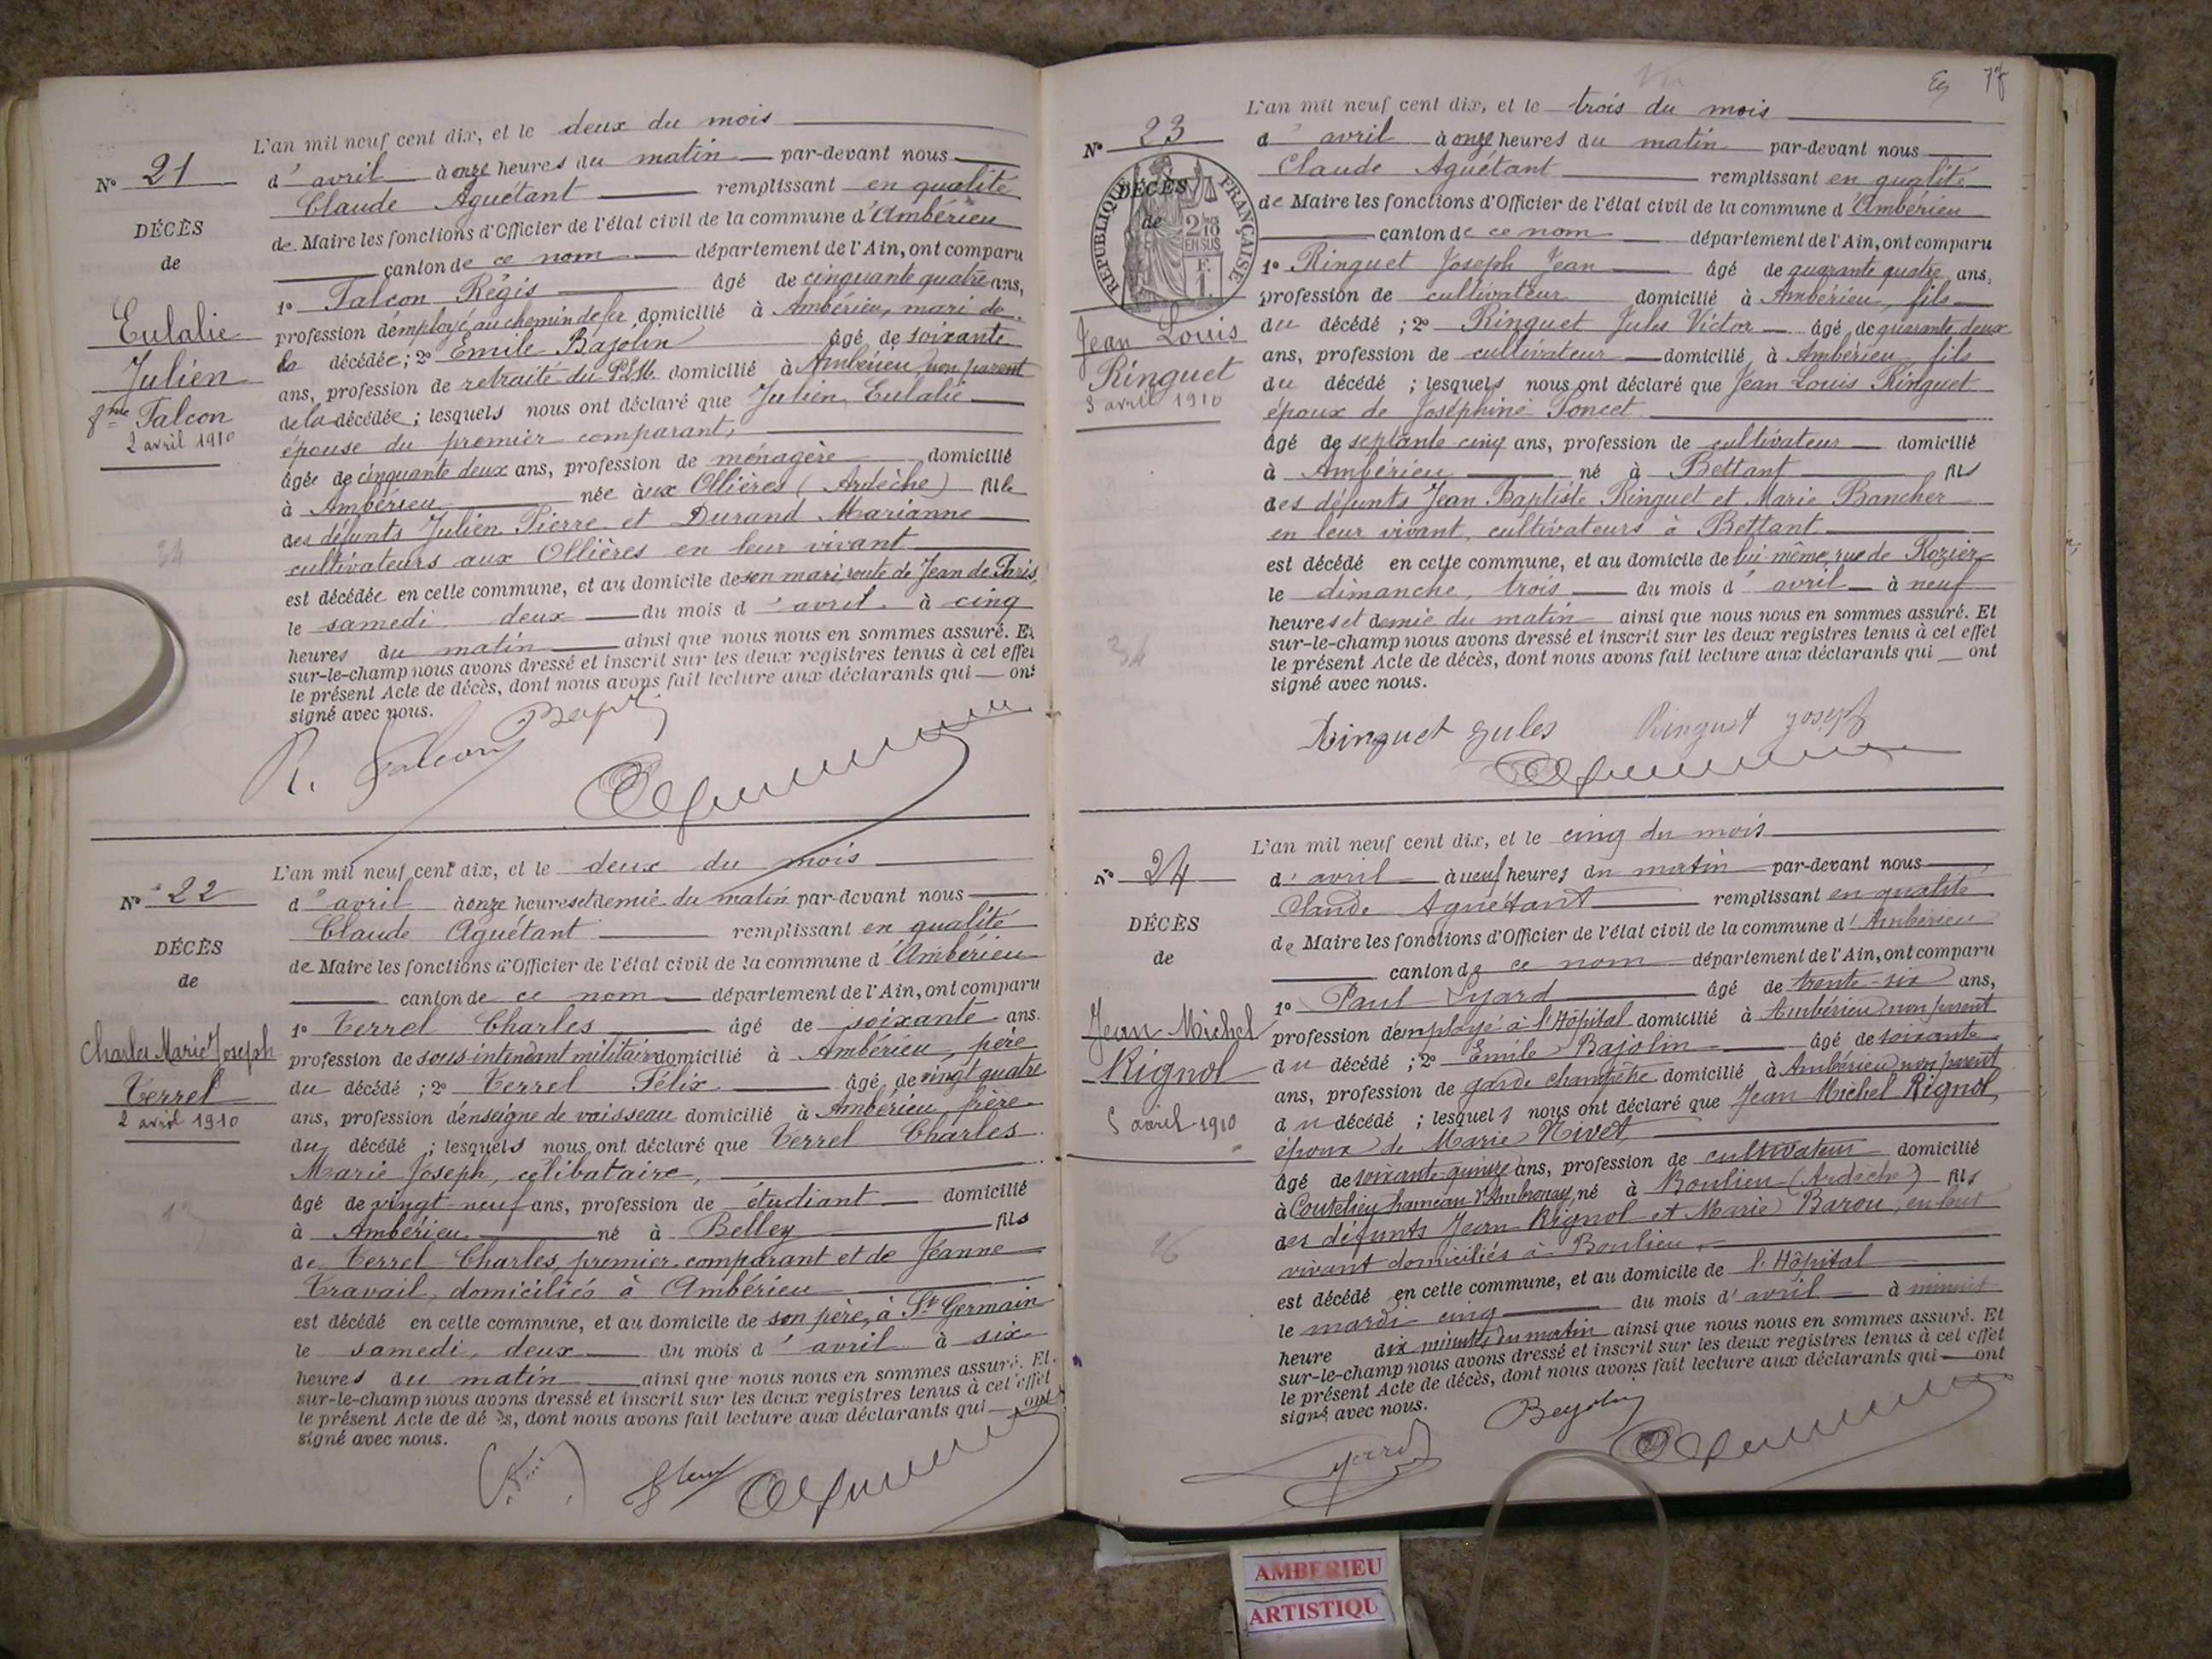 L'an mil neuf cent dix, et le deux du mois
N° 21
d'avril à onze heures du matin par-devant nous
Claude Aguétant remplissant en qualité
de Maire les fonctions d'Officier de l'état civil de la commune d'Ambérieu
canton de ce nom département de l'Ain, ont comparu
DÉCÈS
de
Eulalie
Julien
fme Falcon
2 avril 1910
1° Falcon Régis âgé de cinquante quatre ans,
profession d'employé au chemin de fer domicilié à Ambérieu, mari de
la décédée; 2° Emile Bajolin âgé de soixante
ans, profession de retraité du P.L.M. domicilié à Ambérieu non parent
de la décédée; lesquels nous ont déclaré que Julien, Eulalie
épouse du premier comparant,
âgée de cinquante deux ans, profession de ménagère domicilié
à Ambérieu née aux Ollières (Ardèche) fille
des défunts Julien Pierre et Durand Marianne
cultivateurs aux Ollières en leur vivant
est décédée en cette commune, et au domicile de son mari route de Jean de Paris,
le samedi deux du mois d'avril à cinq
heures du matin ainsi que nous nous en sommes assuré. Et
sur-le-champ nous avons dressé et inscrit sur les deux registres tenus à cet effet
le présent Acte de décès, dont nous avons fait lecture aux déclarants qui ont
signé avec nous.
R. Falcon
L'an mil neuf cent dix, et le deux du mois
N° 22
d'avril à onze heures et demie du matin par-devant nous
Claude Aguétant remplissant en qualité
de Maire les fonctions d'Officier de l'état civil de la commune d'Ambérieu
canton de ce nom département de l'Ain, ont comparu
DÉCÈS
de
Charles Marie Joseph
Terrel
2 avril 1910
1° Terrel Charles âgé de soixante ans.
profession de sous-intendant militaire domicilié à Ambérieu, père
du décédé; 2° Terrel Félix âgé de vingt quatre
ans, profession d'enseigne de vaisseau domicilié à Ambérieu, frère
du décédé; lesquels nous ont déclaré que Terrel Charles
Marie Joseph, célibataire,
âgé de vingt-neuf ans, profession de étudiant domicilié
à Ambérieu né à Belley fils
de Terrel Charles, premier comparant et de Jeanne
Travail, domiciliés à Ambérieu
est décédé en cette commune, et au domicile de son père, à St Germain
le samedi, deux du mois d'avril à six
heures du matin ainsi que nous nous en sommes assuré. Et
sur-le-champ nous avons dressé et inscrit sur les deux registres tenus à cet effet
le présent Acte de décès, dont nous avons fait lecture aux déclarants qui ont
signé avec nous.
L'an mil neuf cent dix, et le trois du mois
N° 23
d'avril à onze heures du matin par-devant nous
Claude Aguétant remplissant en qualité
de Maire les fonctions d'Officier de l'état civil de la commune d'Ambérieu
canton de ce nom département de l'Ain, ont comparu
DÉCÈS
de
RÉPUBLIQUE FRANÇAISE
2/10
EN SUS
F.
1.
Jean Louis
Ringuet
3 avril 1910
1° Ringuet Joseph Jean âgé de quarante quatre ans,
profession de cultivateur domicilié à Ambérieu, fils
du décédé; 2° Ringuet Jules Victor âgé de quarante deux
ans, profession de cultivateur domicilié à Ambérieu, fils
du décédé; lesquels nous ont déclaré que Jean Louis Ringuet
époux de Joséphine Poncet
âgé de septante-cinq ans, profession de cultivateur domicilié
à Ambérieu né à Bettant fils
des défunts Jean Baptiste Ringuet et Marie Bancher
en leur vivant, cultivateurs à Bettant
est décédé en cette commune, et au domicile de lui-même, rue de Rozier
le dimanche, trois du mois d'avril à neuf
heures et demie du matin ainsi que nous nous en sommes assuré. Et
sur-le-champ nous avons dressé et inscrit sur les deux registres tenus à cet effet
le présent Acte de décès, dont nous avons fait lecture aux déclarants qui ont
signé avec nous.
Ringuet Jules Ringuet Joseph
L'an mil neuf cent dix, et le cinq du mois
N° 24
d'avril à neuf heures du matin par-devant nous
Claude Aguétant remplissant en qualité
de Maire les fonctions d'Officier de l'état civil de la commune d'Ambérieu
canton de ce nom département de l'Ain, ont comparu
DÉCÈS
de
Jean Michel
Rignol
5 avril 1910
1° Paul Lyard âgé de trente-six ans,
profession d'employé à l'Hôpital domicilié à Ambérieu non parent
du décédé; 2° Emile Bajolin âgé de soixante
ans, profession de garde champêtre domicilié à Ambérieu non parent
du décédé; lesquels nous ont déclaré que Jean Michel Rignol,
époux de Marie Nivet,
âgé de soixante-quinze ans, profession de cultivateur domicilié
à Coutelieu hameau d'Ambronay, né à Boulieu (Ardèche) fils
des défunts Jean Rignol et Marie Barou, en leur
vivant domiciliés à Boulieu,
est décédé en cette commune, et au domicile de l'Hôpital
le mardi cinq du mois d'avril à minuit
heure dix minutes du matin ainsi que nous nous en sommes assuré. Et
sur-le-champ nous avons dressé et inscrit sur les deux registres tenus à cet effet
le présent Acte de décès, dont nous avons fait lecture aux déclarants qui ont
signé avec nous.
AMBERIEU
ARTISTIQU